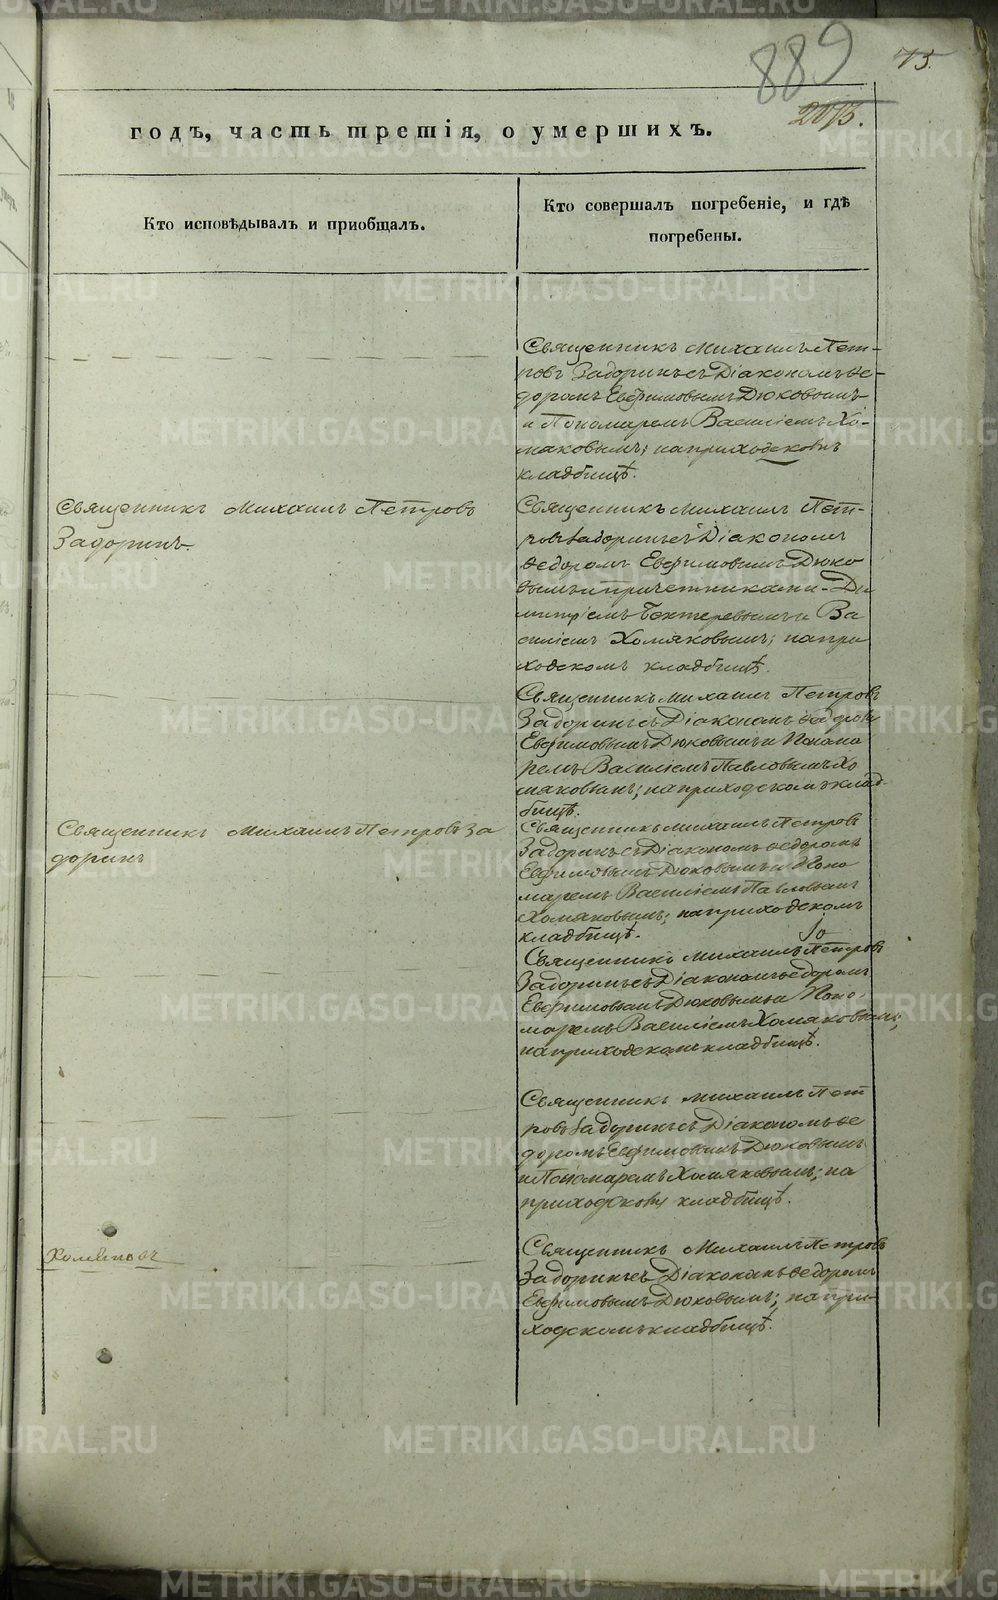 889
75.
2013.
годъ, часть третія, о умершихъ.
Кто исповѣдывалъ и приобщалъ.
Кто совершалъ погребеніе, и гдѣ
погребены.
Священникъ Михаилъ Пет-
ровъ Задоринъ съ Діакономъ Ѳе-
доромъ Евфимовымъ Дюковымъ
и Пономаремъ Василіемъ Хо-
мяковымъ; на приходсковъ
кладбищѣ.
Священникъ Михаилъ Петровъ
Задоринъ.
Священникъ Михаилъ Пет-
ровъ Задоринъ съ Діакономъ
Ѳедоромъ Евфимовымъ Дюко
вымъ и причетниками - Ди
митріемъ Бехтеревымъ и Ва
силіемъ Хомяковымъ; на при
ходскомъ кладбищѣ.
Священникъ Михаилъ Петровъ
Задоринъ съ Діакономъ Ѳедоромъ
Евфимовымъ Дюковымъ и Понома
ремъ Василіемъ Павловымъ Хо
мяковымъ; на приходскомъ клад-
бищѣ.
Священникъ Михаилъ Петровъ За
доринъ
Священникъ Михаилъ Петровъ
Задоринъ съ Діакономъ Ѳедоромъ
Евфимовымъ Дюковымъ и Поно
маремъ Василіемъ Павловымъ
Хомяковымъ; на приходскомъ
кладбищѣ.
Священникъ Михаилъ Петровъ
Задоринъ съ Діакономъ Ѳедоромъ
Евфимовымъ Дюковымъ и Поно-
маремъ Василіемъ Хомяковымъ;
на приходскомъ кладбищѣ.
Священникъ Михаилъ Пет
ровъ Задоринъ съ Діакономъ Ѳе
доромъ Евфимовымъ Дюковымъ
и Пономаремъ Хомяковымъ; на
приходсковъ кладбищѣ.
Священникъ Михаилъ Петровъ
Задоринъ съ Діакономъ Ѳедоромъ
Евфимовымъ Дюковымъ; на при-
ходскомъ кладбищѣ.
METRIKI.GASO-URAL.RU